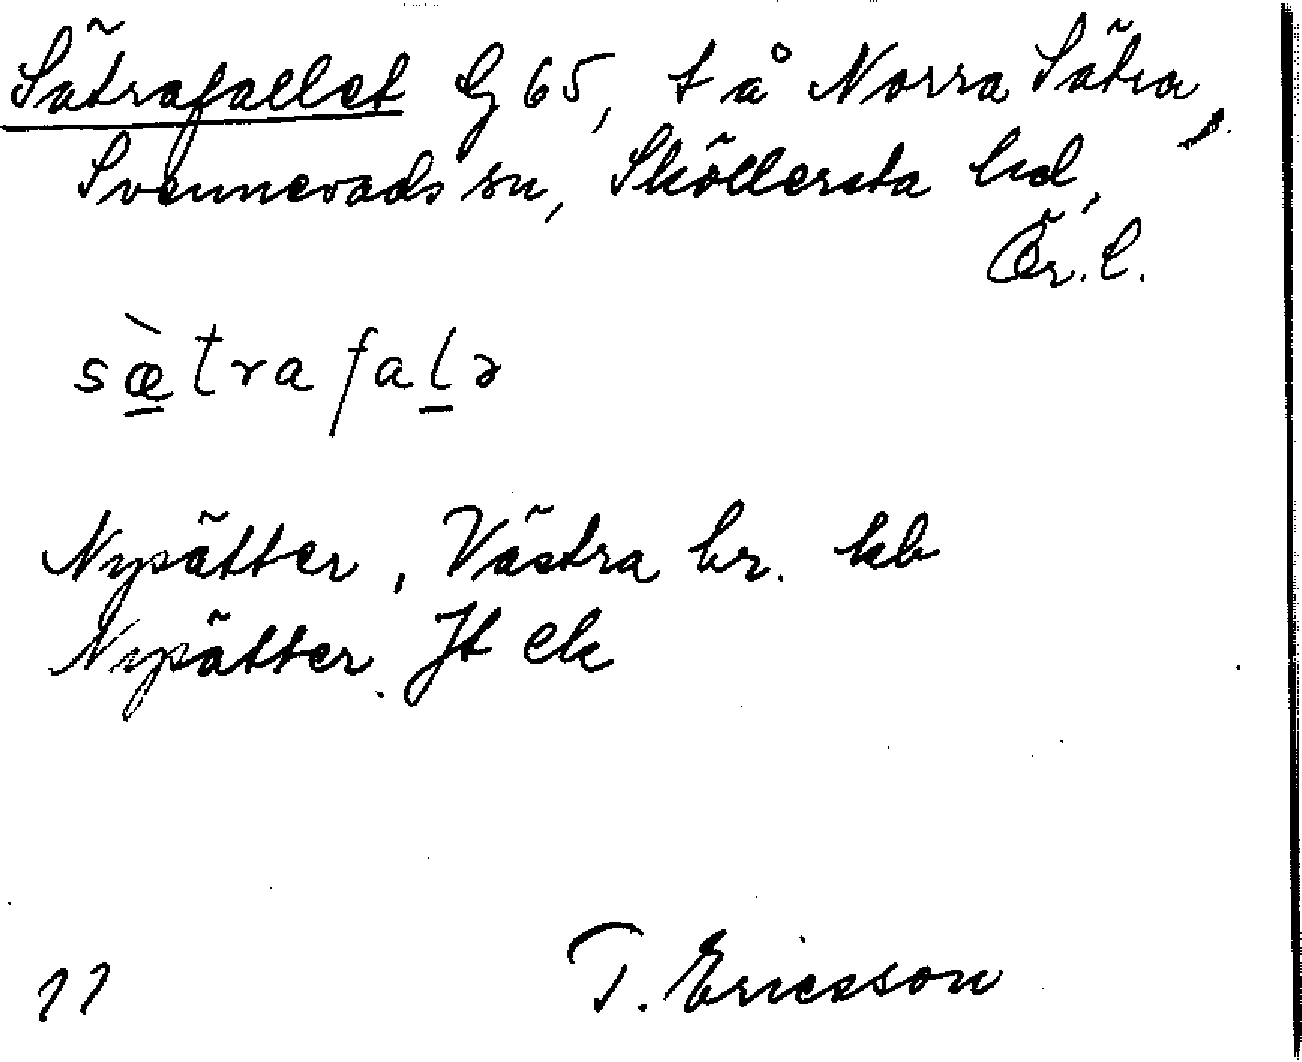 Sätrafallet G 65, t å Norra Sätra,
Svennevads sn, Sköllersta hd,
Ör. l.
sæ̀trafalə
Nysätter, Västra br. kb
Nysätter. Jt ek
11 T. Ericsson